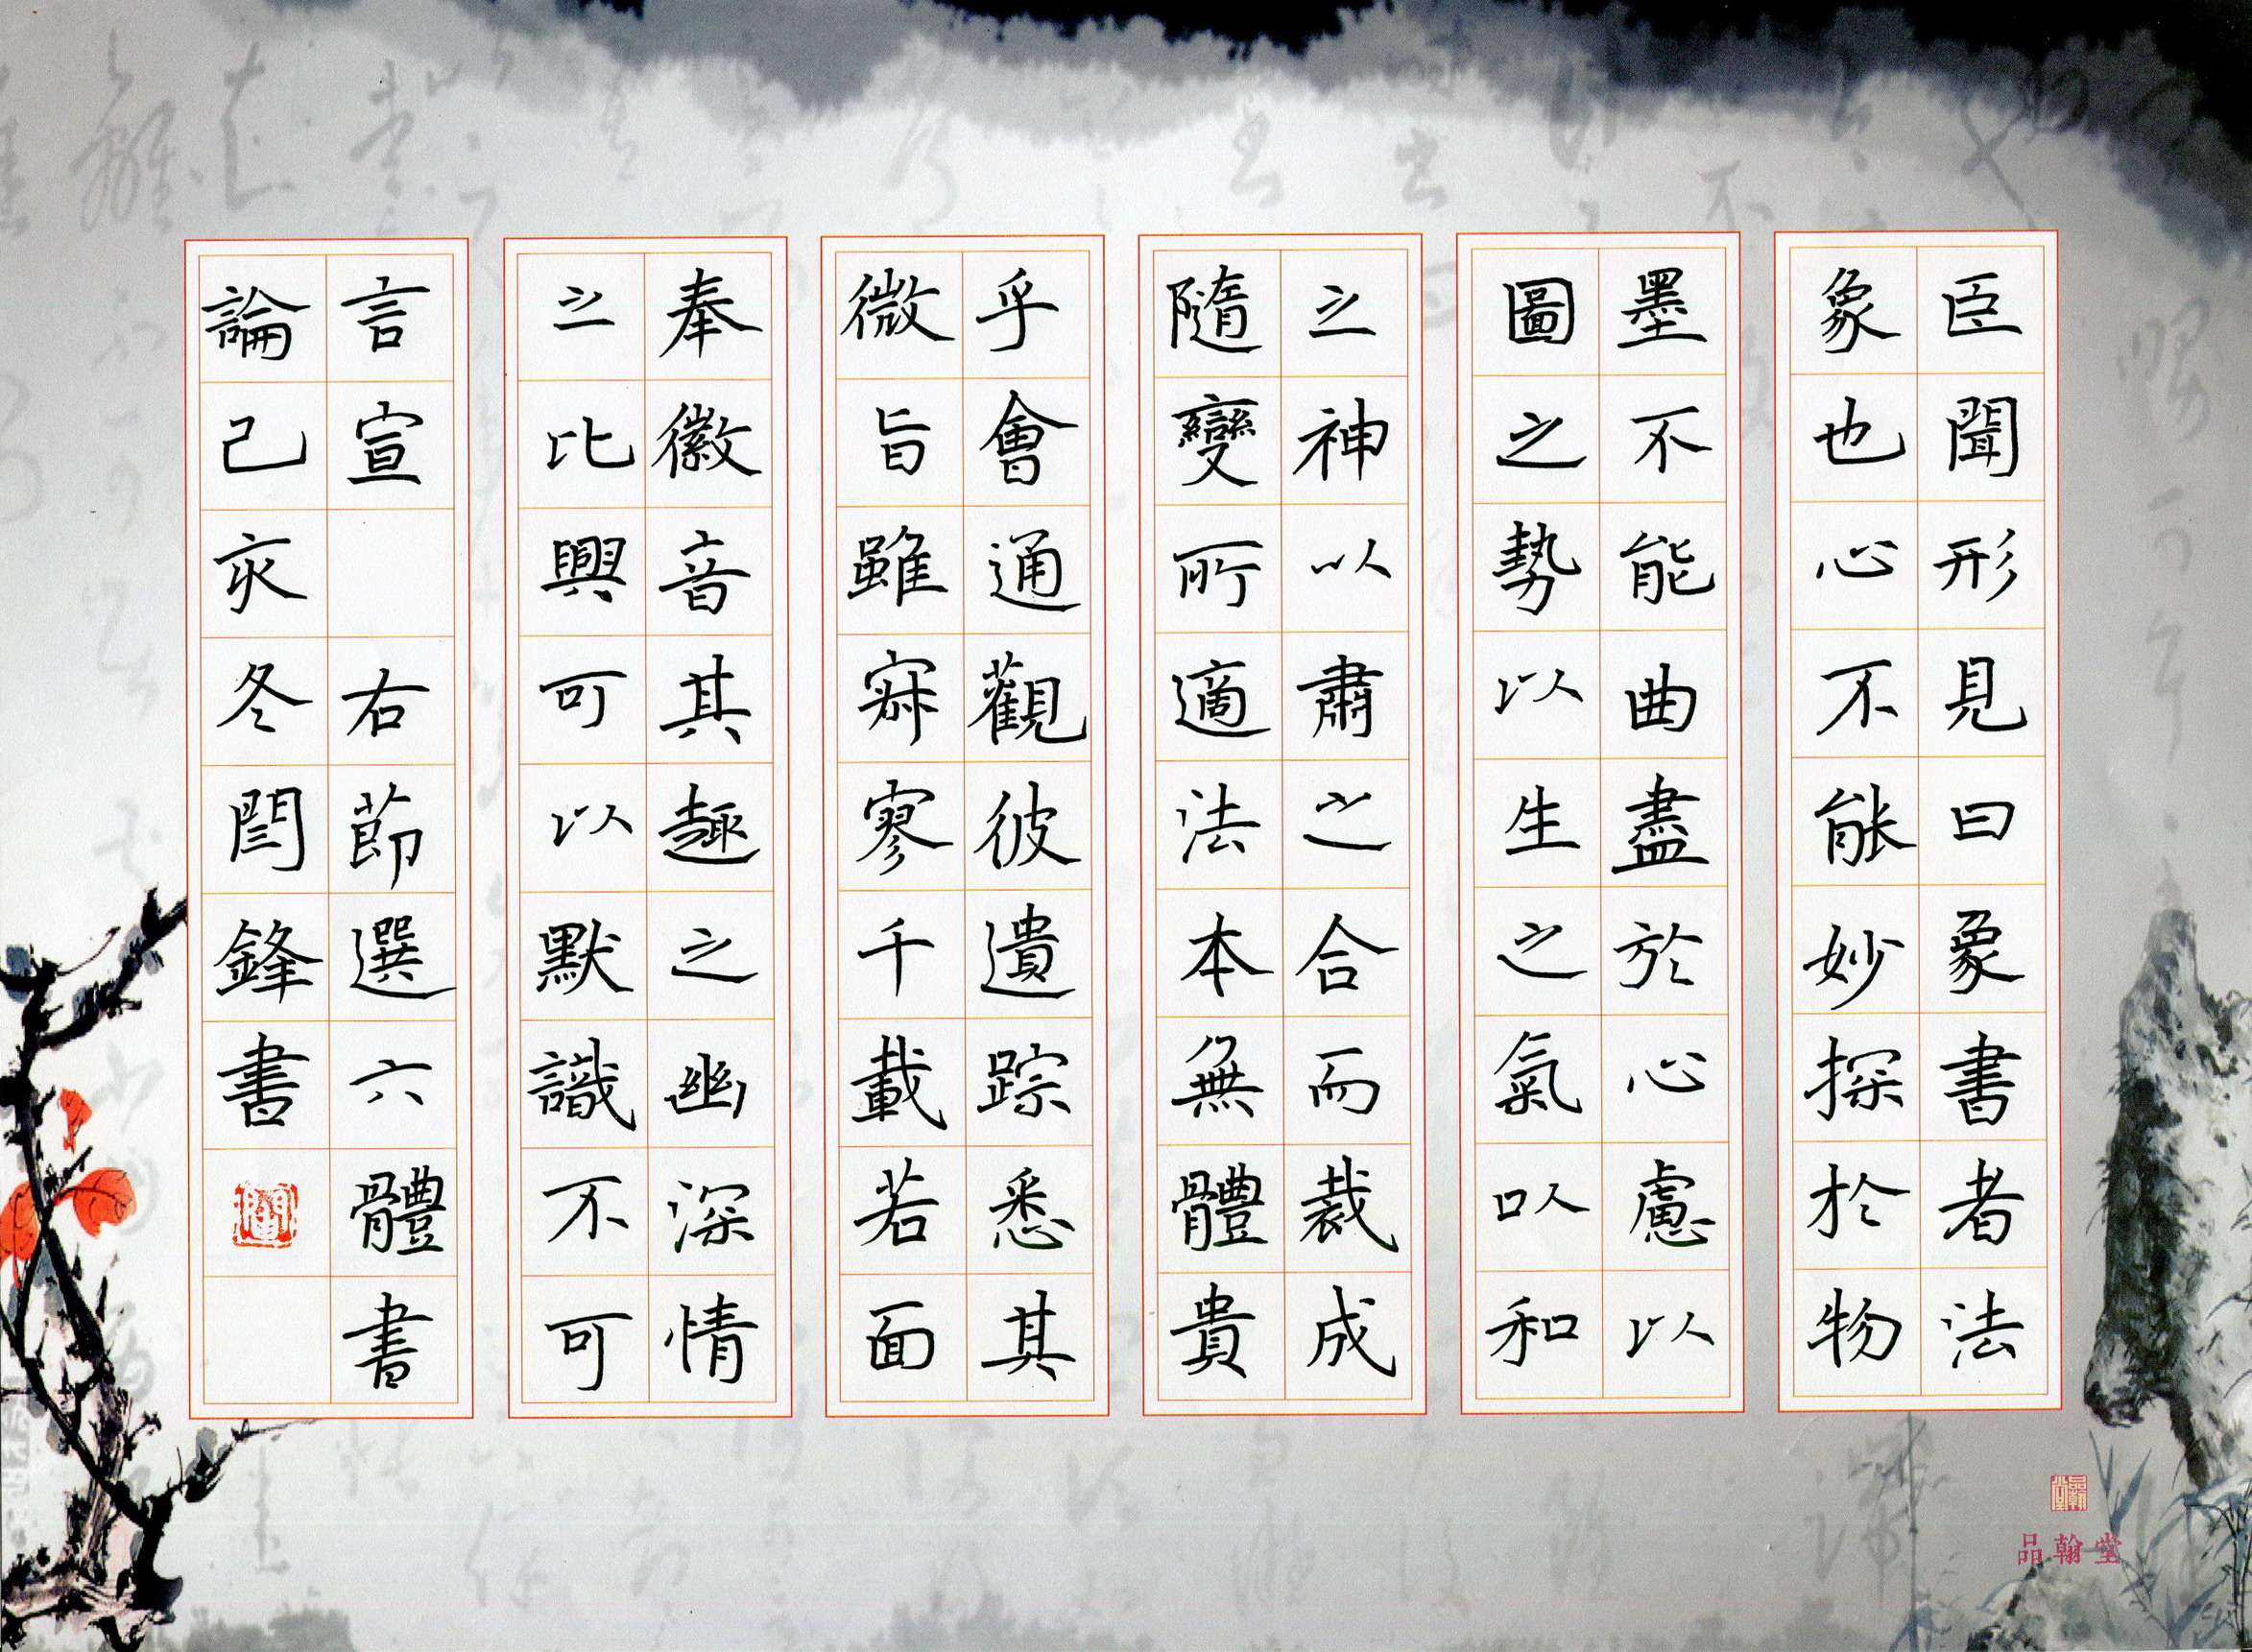 臣聞形見曰象書者法
象也心不能妙探於物
墨不能曲盡於心慮以
圖之勢以生之氣以和
之神以肅之合而裁成
隨變所適法本無體貴
乎會通觀彼遺踪悉其
微旨雖寂寥千載若面
奉徽音其趣之幽深情
之比興可以默識不可
言宣 右節選六體書
論己亥冬閆鋒書
品翰堂